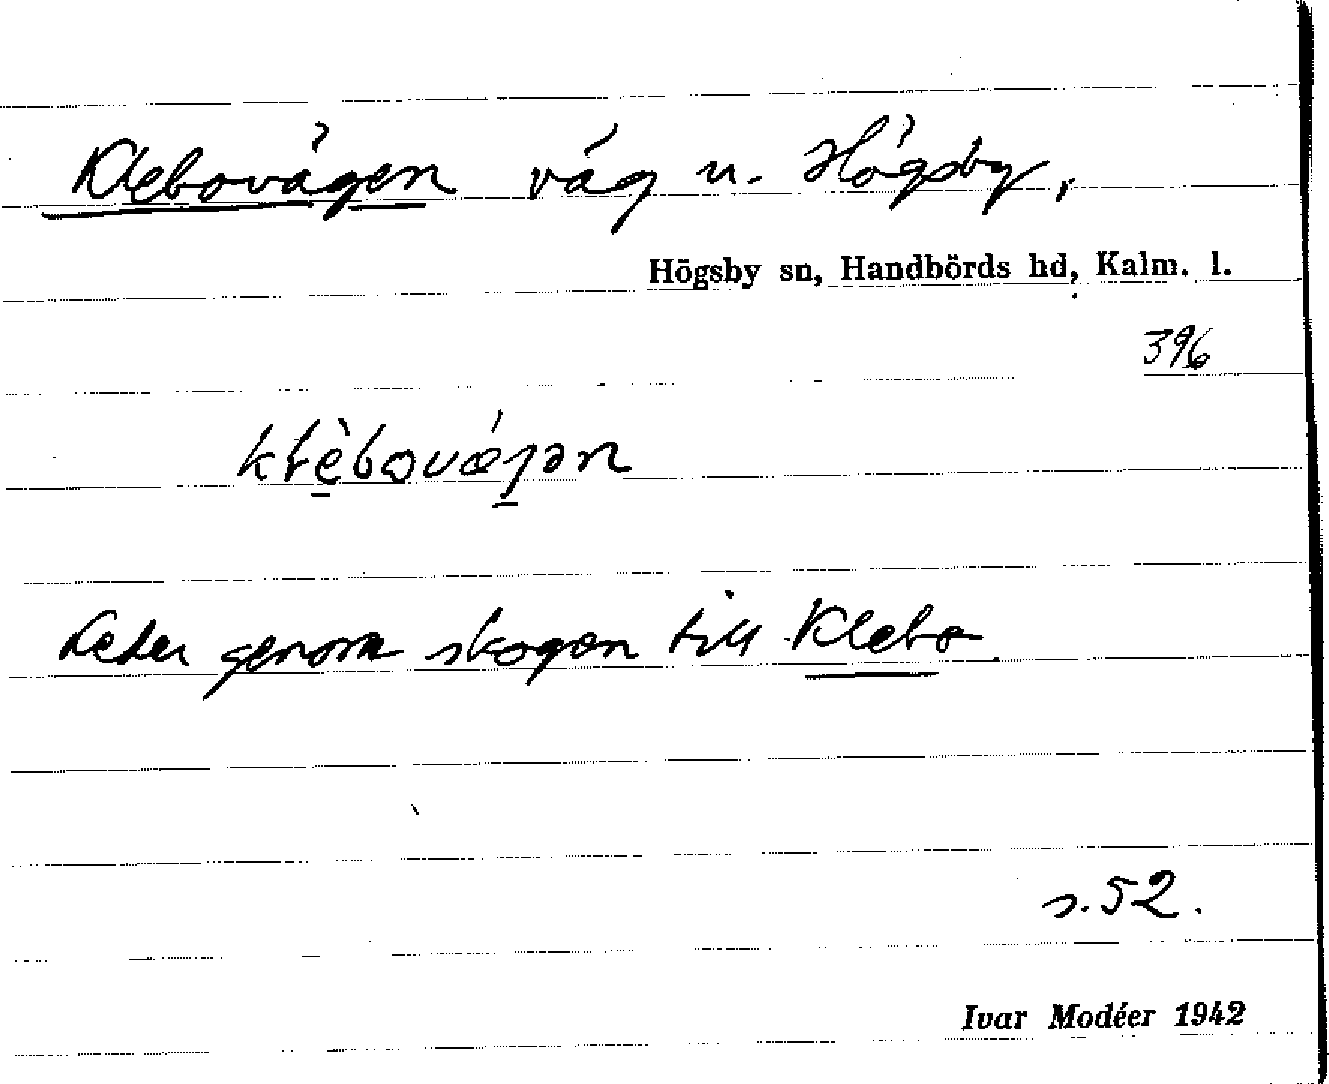 Klebovägen väg u. Högsby,
Högsby sn, Handbörds hd, Kalm. l.
396
Leder genom skogen till Klebo
s. 52.
Ivar Modéer 1942